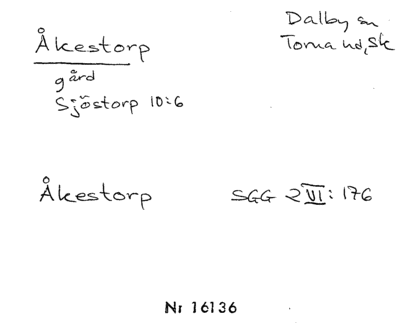 Åkestorp
gård
Sjöstorp 10:6
Dalby sn
Torna hd, Sk
Åkestorp
SGG 2 VI: 176
Nr 16136